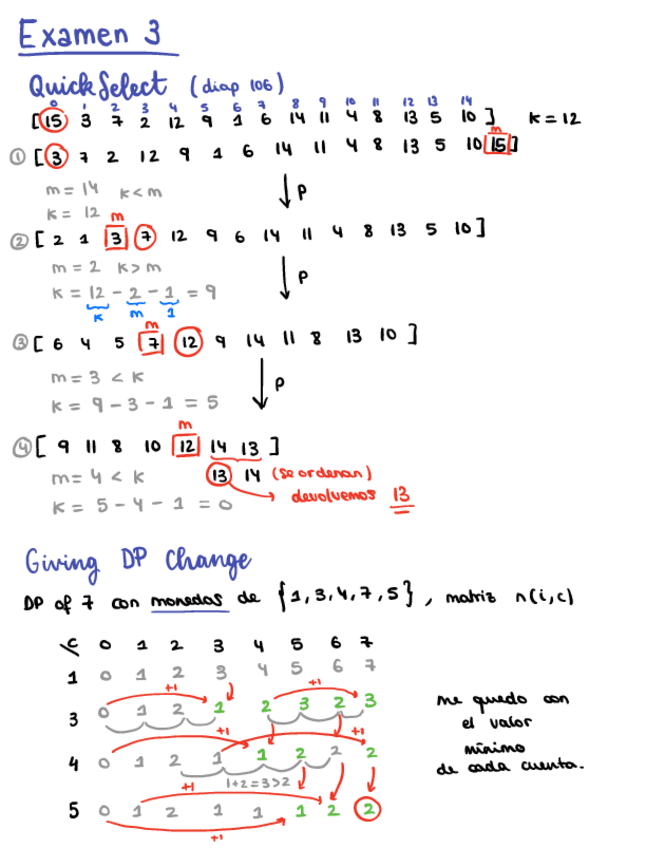 Examen 3
QuickSelect (diap 106)
0 1 2 3 4 5 6 7 8 9 10 11 12 13 14
[15 3 7 2 12 9 1 6 14 11 4 8 13 5 10] k=12
m
① [3 7 2 12 9 1 6 14 11 4 8 13 5 10 15]
m = 14 k<m
k = 12
p
m
② [2 1 3 7 12 9 6 14 11 4 8 13 5 10]
m = 2 k>m
k = 12 - 2 - 1 = 9
k m 1
p
m
③ [6 4 5 7 12 9 14 11 8 13 10]
m = 3 < k
k = 9 - 3 - 1 = 5
p
m
④ [9 11 8 10 12 14 13]
m = 4 < k
13 14 (se ordenan)
devolvemos 13
k = 5 - 4 - 1 = 0
Giving DP Change
DP of 7 con monedas de {1,3,4,7,5}, matriz n(i,c)
c 0 1 2 3 4 5 6 7
1 0 1 2 3 4 5 6 7
+1 +1
3 0 1 2 1 2 3 2 3
+1 +1
4 0 1 2 1 1 2 2 2
+1 1+2=3>2
5 0 1 2 1 1 1 2 2
+1
me quedo con
el valor
mínimo
de cada cuenta.